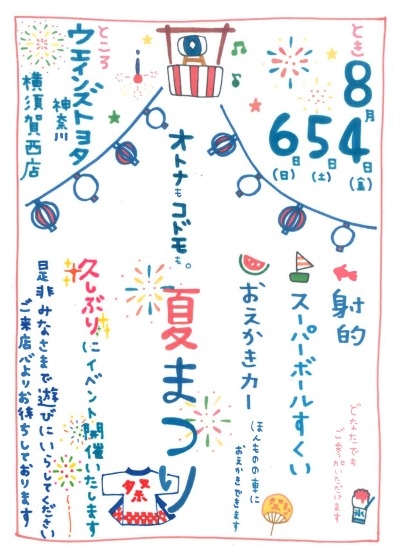 とき
8月
4日(金)
5日(土)
6日(日)
ところ
ウエインズトヨタ
神奈川
横須賀西店
オトナもコドモも。
夏まつり
射的
スーパーボールすくい
おえかきカー
(ほんものの車に
おえかきできます
どなたでも
ご参加いただけます
氷
祭
久しぶりにイベント開催いたします
是非みなさまで遊びにいらしてください
ご来店心よりお待ちしております